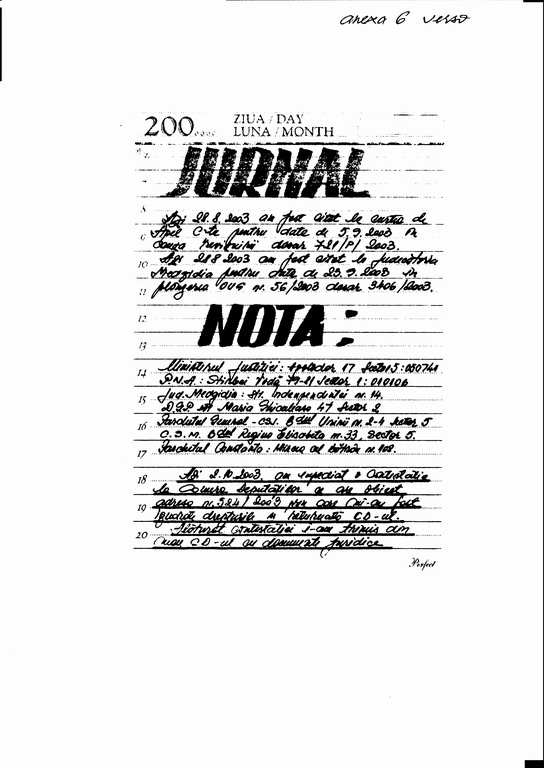 anexa 6 verso
200.... ZIUA / DAY
LUNA / MONTH
7
JURNAL
8
Azi 28.8.2003 am fost citat la curtea de
9 Apel C-ța pentru data de 5.9.2003 în
dosar 721/P/2003.
10 Azi 28 8 2003 am fost citat la Judecătoria
Medgidia pentru data de 23.9.2003 în
11 plângerea OUG nr. 56/2003 dosar 3406/2003.
12 NOTA :
13
14 Ministerul Justiției: Apolodor 17 Sector 5: 050741
P.N.A.: Știrbei Vodă 79-81 Sector 1: 010106
15 Jud. Medgidia: Str. Independenței nr. 14.
D.G.P. str Maria 47 Sector 2
16 Parchetul General - CSJ. Bdul Unirii nr. 2-4 Sector 5
C.S.M. Bdul Regina Elisabeta nr. 33, Sector 5.
17 Parchetul Constanța: Mircea cel Bătrân nr.
18 Azi 2.10.2003, am expediat o Contestație
la Camera Deputaților ce are obiect
19 adresa nr. 524/2003 prin care mi-au fost
drepturile și returnarea CD-ul.
20 contestației l-am trimis din
nou CD-ul cu documente juridice
Perfect